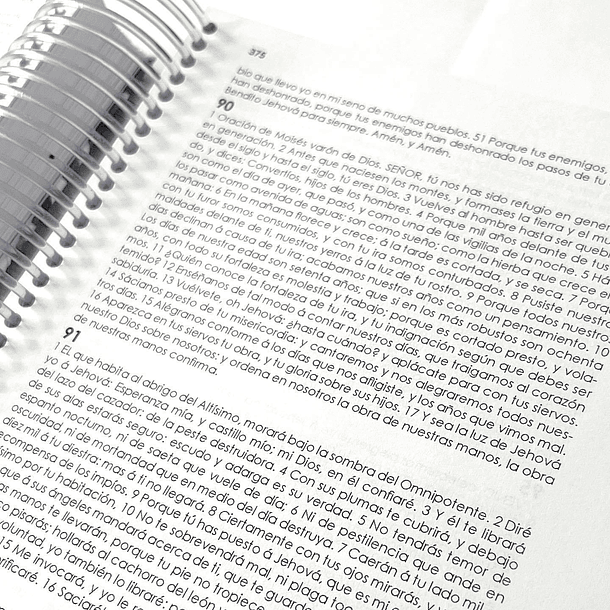 375
bío que llevo yo en mi seno de muchos pueblos. 51 Porque tus enemigos,
han deshonrado, porque tus enemigos han deshonrado los pasos de tu
Bendito Jehová para siempre. Amén, y Amén.
90
1 Oración de Moisés varón de Dios. SEÑOR, tú nos has sido refugio en gener
en generación. 2 Antes que naciesen los montes, y formases la tierra y el mu
desde el siglo y hasta el siglo, tú eres Dios. 3 Vuelves al hombre hasta ser queb
do, y dices: Convertíos, hijos de los hombres. 4 Porque mil años delante de tus
son como el día de ayer, que pasó, y como una de las vigilias de la noche. 5
los pasar como avenida de aguas; son como sueño; como la hierba que crece e
mañana: 6 En la mañana florece y crece; á la tarde es cortada, y se seca. 7 Porq
con tu furor somos consumidos, y con tu ira somos conturbados. 8 Pusiste nuestr
maldades delante de ti, nuestros yerros á la luz de tu rostro. 9 Porque todos nuestro
días declinan á causa de tu ira; acabamos nuestros años como un pensamiento. 10
Los días de nuestra edad son setenta años; que si en los más robustos son ochenta
años, con todo su fortaleza es molestia y trabajo; porque es cortado presto, y vola-
mos. 11 ¿Quién conoce la fortaleza de tu ira, y tu indignación según que debes ser
temido? 12 Enséñanos de tal modo á contar nuestros días, que traigamos al corazón
sabiduría. 13 Vuélvete, oh Jehová: ¿hasta cuándo? y aplácate para con tus siervos.
14 Sácianos presto de tu misericordia: y cantaremos y nos alegraremos todos nues-
tros días. 15 Alégranos conforme á los días que nos afligiste, y los años que vimos mal.
16 Aparezca en tus siervos tu obra, y tu gloria sobre sus hijos. 17 Y sea la luz de Jehová
nuestro Dios sobre nosotros: y ordena en nosotros la obra de nuestras manos, la obra
de nuestras manos confirma.
91
1 EL que habita al abrigo del Altísimo, morará bajo la sombra del Omnipotente. 2 Diré
yo á Jehová: Esperanza mía, y castillo mío; mi Dios, en él confiaré. 3 Y él te librará
del lazo del cazador: de la peste destruidora. 4 Con sus plumas te cubrirá, y debajo
de sus alas estarás seguro: escudo y adarga es su verdad. 5 No tendrás temor de
espanto nocturno, ni de saeta que vuele de día; 6 Ni de pestilencia que ande en
oscuridad, ni de mortandad que en medio del día destruya. 7 Caerán á tu lado mil
diez mil á tu diestra: mas á ti no llegará. 8 Ciertamente con tus ojos mirarás, y
ecompensa de los impíos. 9 Porque tú has puesto á Jehová, que es mi
simo por tu habitación, 10 No te sobrevendrá mal, ni plaga
que á sus ángeles mandará acerca de ti, que te guarde
manos te llevarán, porque tu pie no tropiece
pisarás; hollarás al cachorro del león
voluntad, yo también lo libraré:
15 Me invocará, y yo le
rificaré. 16 Saciaré